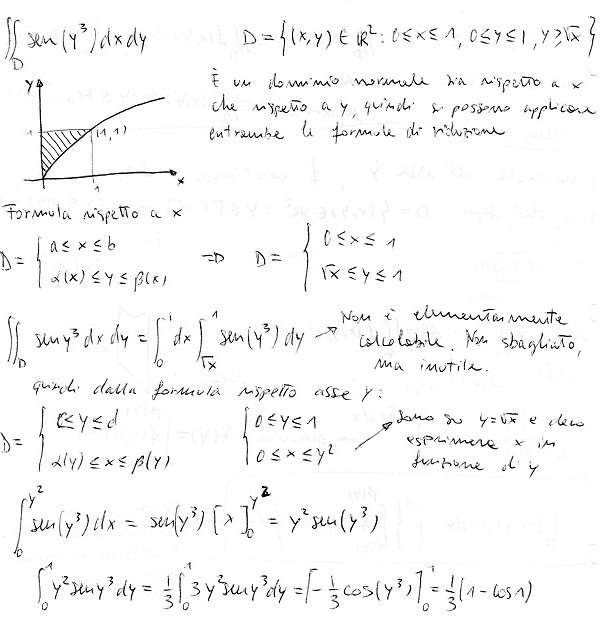 ∬_D sen(y³)dxdy   D = {(x,y) ∈ ℝ²: 0≤x≤1, 0≤y≤1, y≥√x}
È un dominio normale sia rispetto a x
che rispetto a y, quindi si possono applicare
entrambe le formule di riduzione
y
1
(1,1)
1
x
Formula rispetto a x
D = { a≤x≤b   ⇒   D = { 0≤x≤1
α(x)≤y≤β(x)   √x≤y≤1
∬_D sen y³ dx dy = ∫_0^1 dx ∫_√x^1 sen(y³) dy → Non è elementarmente
calcolabile. Non sbagliato,
ma inutile.
quindi dalla formula rispetto asse y:
D = { c≤y≤d   { 0≤y≤1   → Sono su y=√x e devo
α(y)≤x≤β(y)   0≤x≤y²   esprimere x in
funzione di y
∫_0^y² sen(y³)dx = sen(y³)[x]_0^y² = y² sen(y³)
∫_0^1 y² sen y³ dy = 1/3 ∫_0^1 3y² sen y³ dy = [-1/3 cos(y³)]_0^1 = 1/3 (1-cos1)